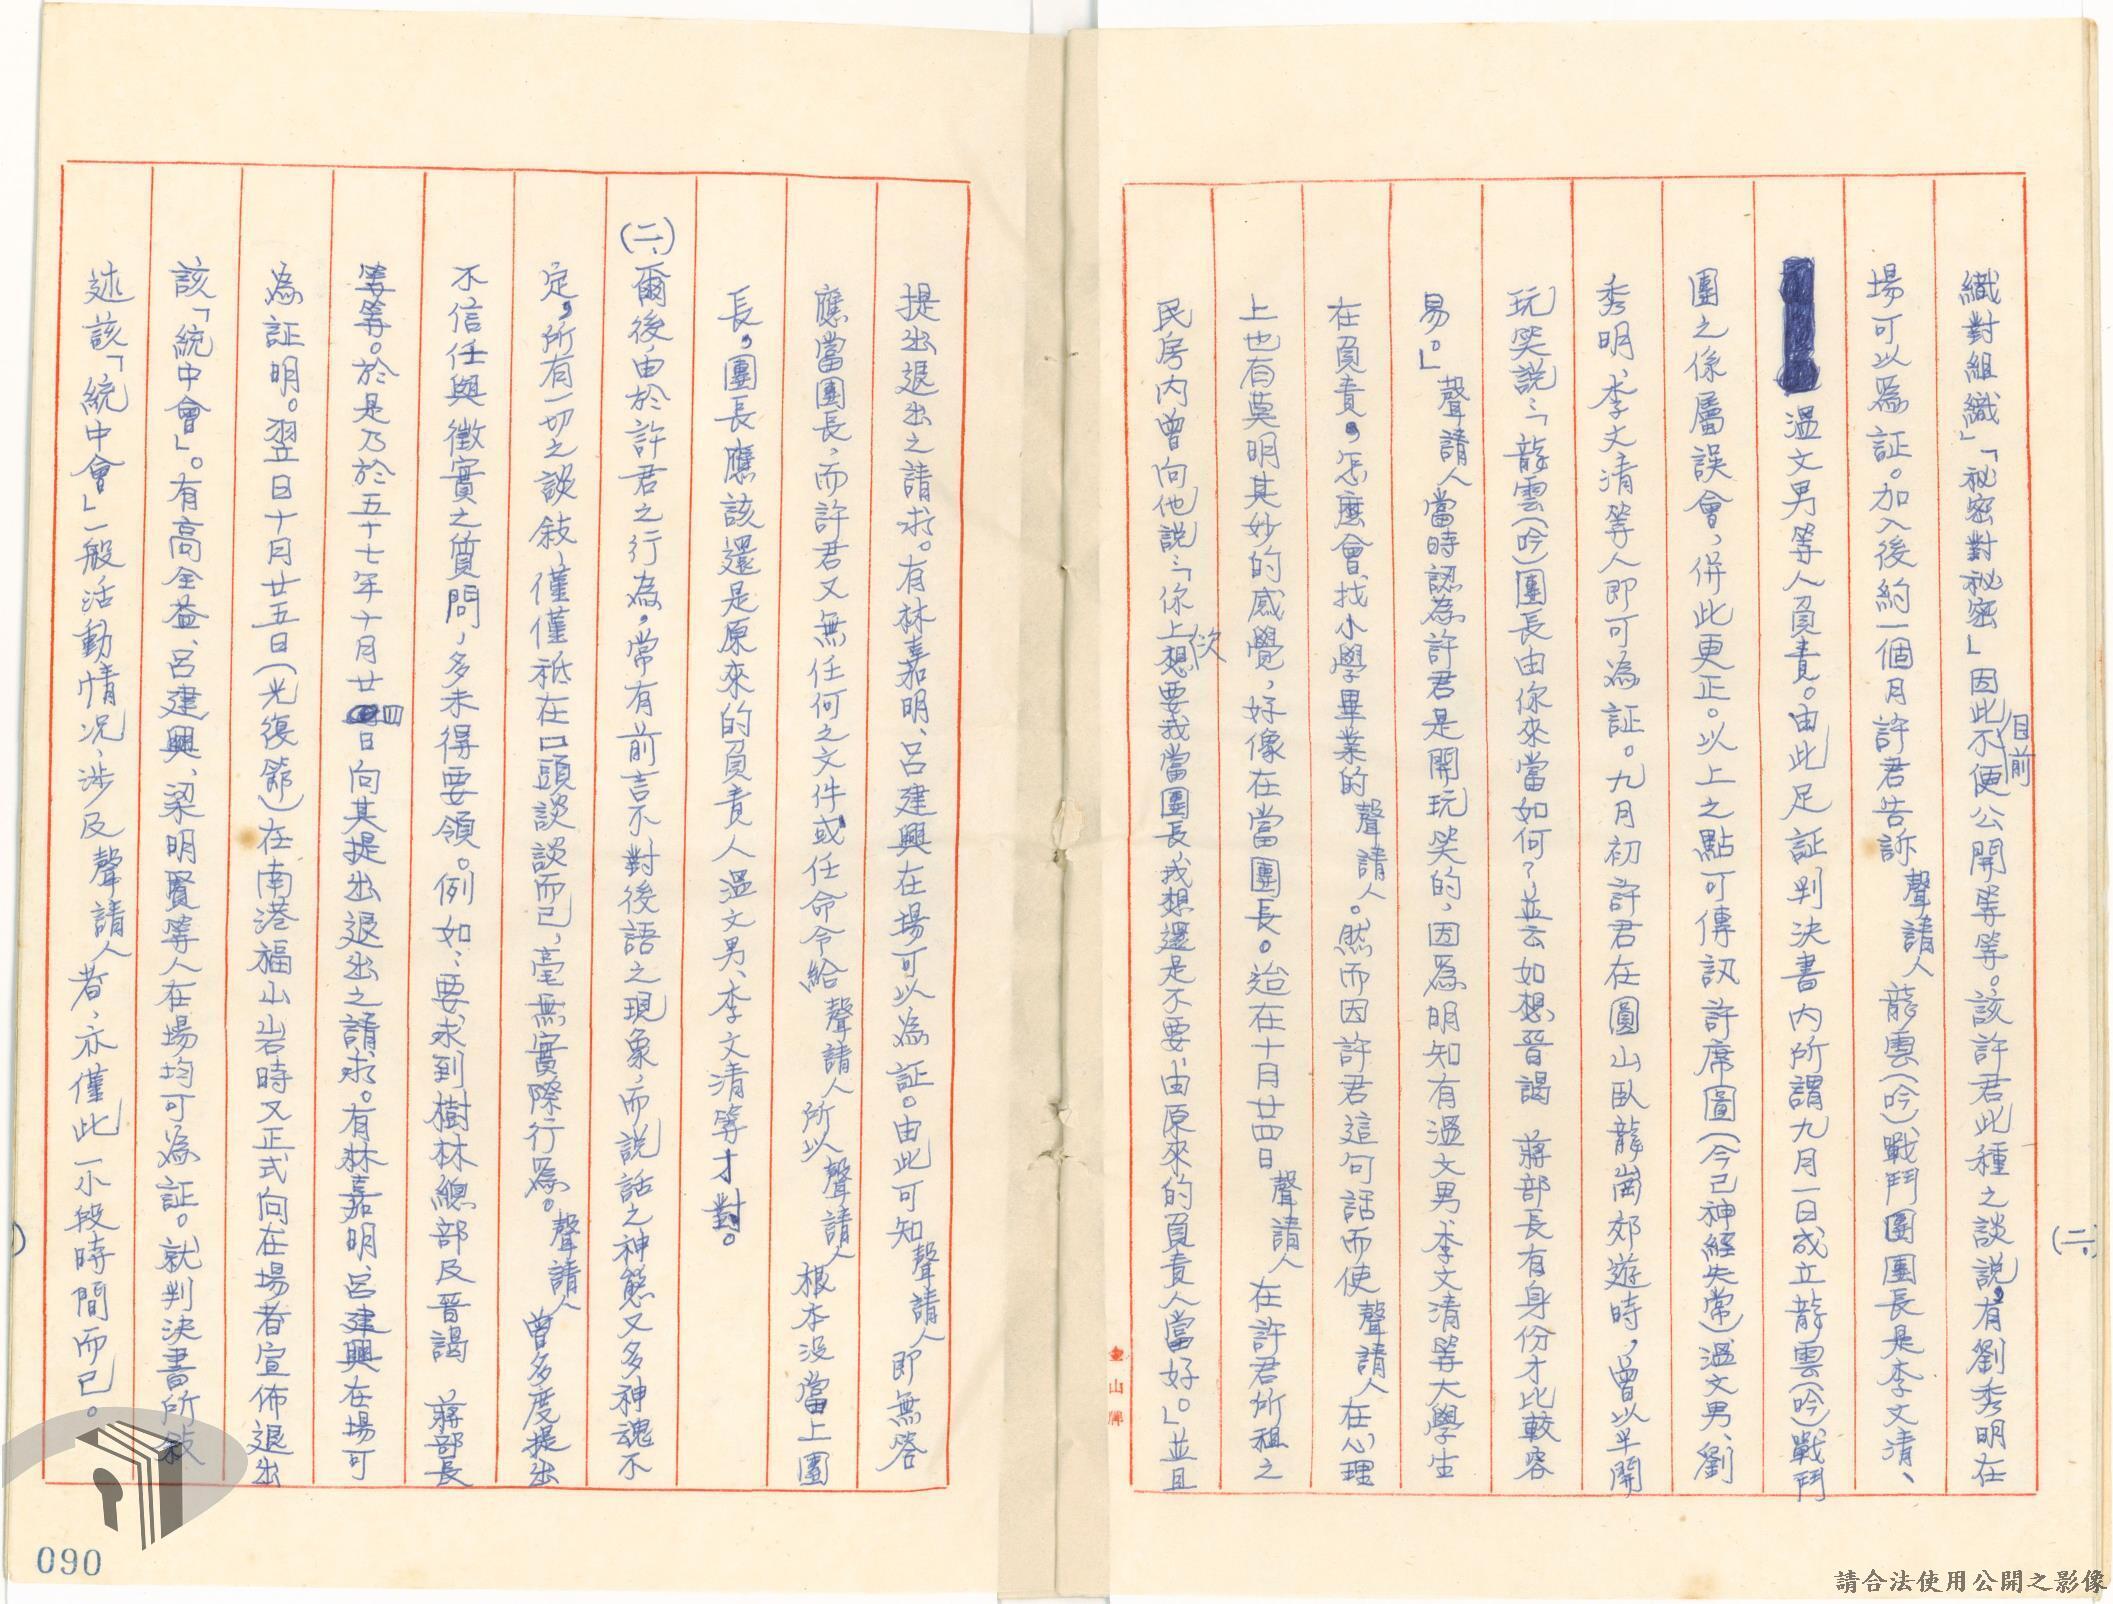 (二、)
織對組織」「祕密對祕密」因此目前不便公開等等。該許君此種之談說,有劉秀明在
場可以為証。加入後約一個月許君告訴聲請人龍雲(吟)戰鬥團團長是李文清、
溫文男等人負責。由此足証判決書內所謂九月一日成立龍雲(吟)戰鬥
團之係屬誤會,併此更正。以上之點可傳訊許席圖(今已神經失常)溫文男、劉
秀明、李文清等人即可為証。九月初許君在圓山臥龍崗郊遊時,曾以半開
玩笑說:「龍雲(吟)團長由你來當如何?並云如想晉謁 蔣部長有身份才比較容
易。」聲請人當時認為許君是開玩笑的,因為明知有溫文男李文清等大學生
在負責,怎麼會找小學畢業的聲請人。然而因許君這句話而使聲請人在心理
上也有莫明其妙的感覺,好像在當團長。迨在十月廿四日聲請人在許君所租之
民房內曾向他說:「你上次想要我當團長我想還是不要,由原來的負責人當好。」並且
提出退出之請求。有林嘉明、呂建興在場可以為証。由此可知聲請人即無答
應當團長,而許君又無任何之文件或任命令給聲請人所以聲請人根本沒當上團
長。團長應該還是原來的負責人溫文男、李文清等才對。
(二、)爾後,由於許君之行為,常有前言不對後語之現象,而說話之神態又多神魂不
定,所有一切之談敍,僅僅祗在口頭談談而已,毫無實際行為。聲請人曾多度提出
不信任與徵實之質問,多未得要領。例如:要求到樹林總部及晉謁 蔣部長
等等。於是乃於五十七年十月廿四日向其提出退出之請求。有林嘉明、呂建興在場可
為証明。翌日十月廿五日(光復節)在南港福山岩時又正式向在場者宣佈退出
該「統中會」。有高全益、呂建興、梁明賢等人在場均可為証。就判決書所敍
述該「統中會」一般活動情況,涉及聲請人者,亦僅此一小段時間而已。
金山牌
090
請合法使用公開之影像